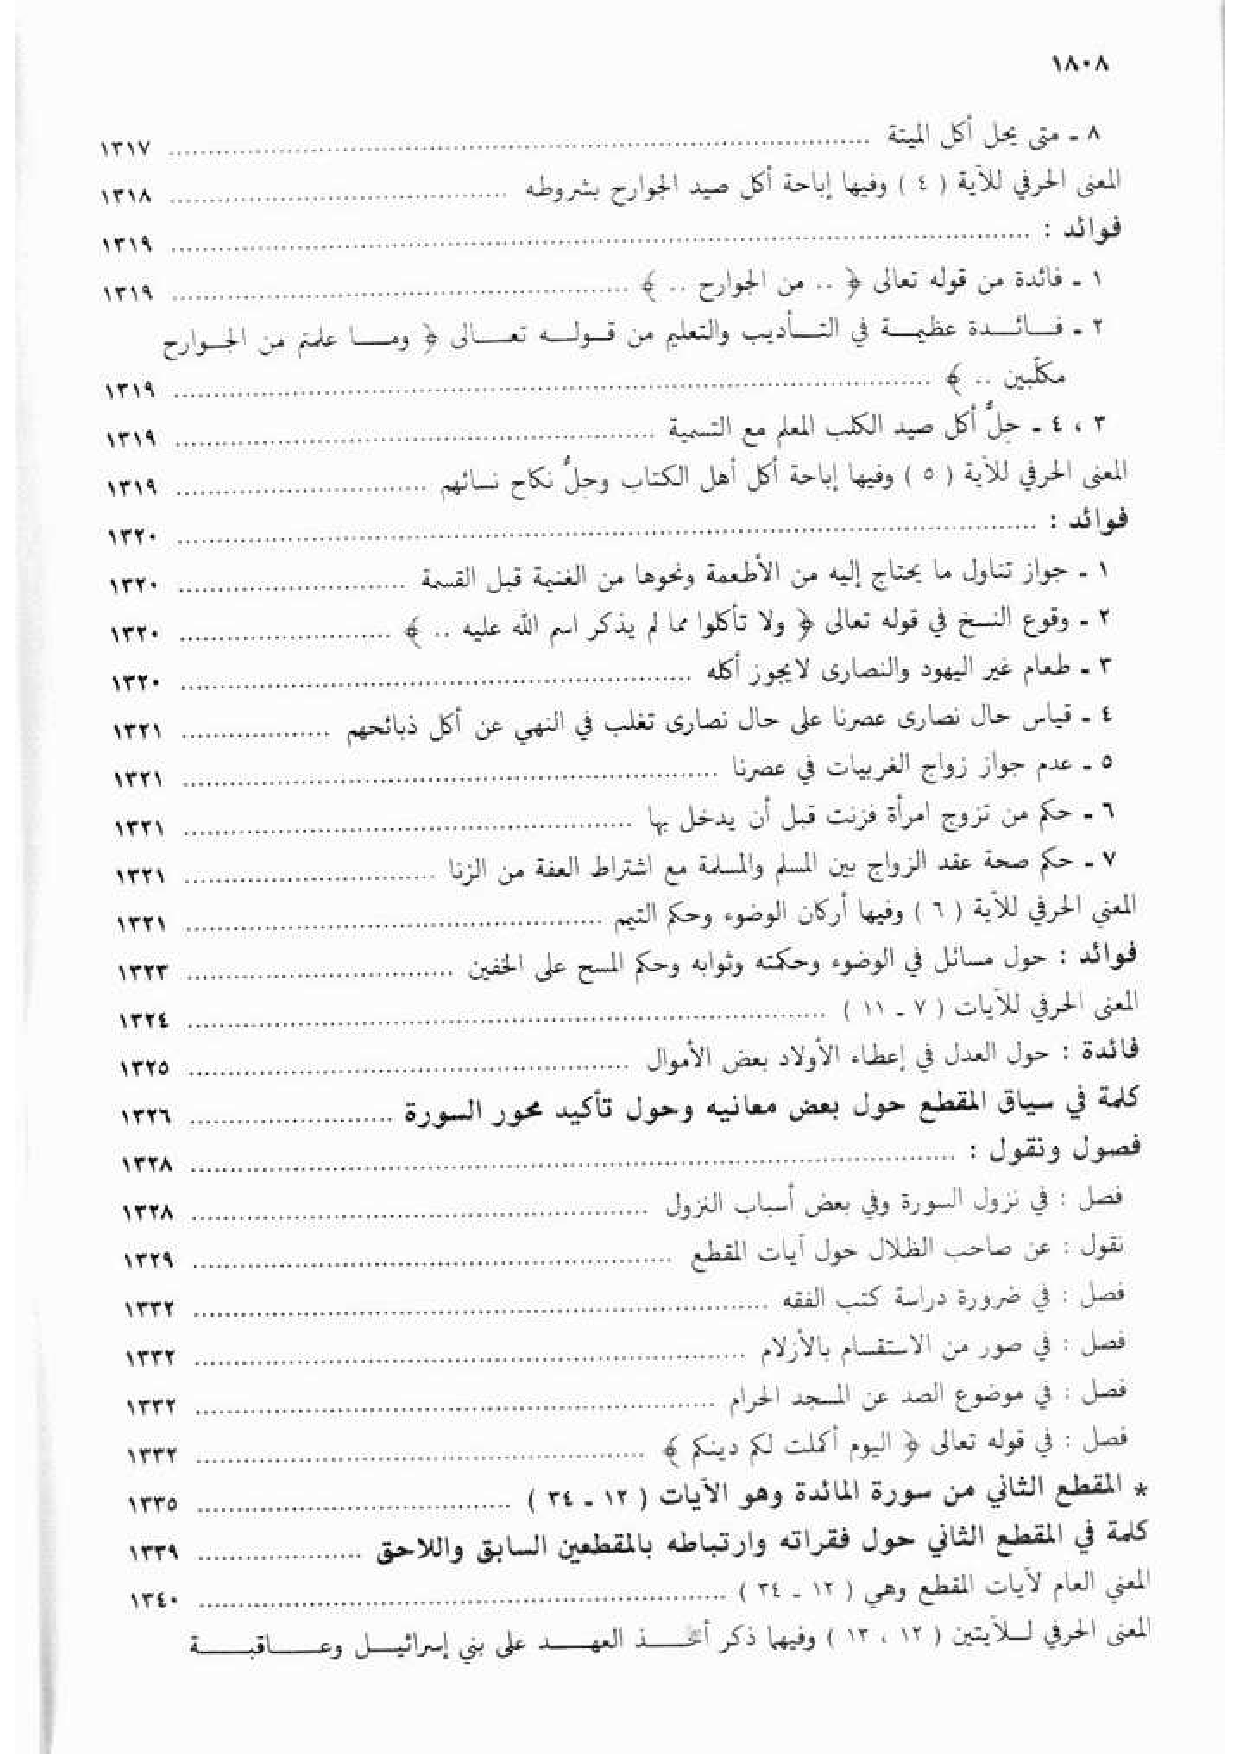 ١٨٠٨
٨ ـ متى يحل أكل الميتة ........ ١٣١٧
المعنى الحرفي للآية ( ٤ ) وفيها إباحة أكل صيد الجوارح بشروطه ........ ١٣١٨
فوائد : ........ ١٣١٩
١ ـ فائدة من قوله تعالى ﴿ .. من الجوارح .. ﴾ ........ ١٣١٩
٢ ـ فـائـدة عظيمـة في التـأديب والتعليم من قـولـه تعـالى ﴿ ومـا علمتم من الجـوارح
مكلّبين .. ﴾ ........ ١٣١٩
٣ ، ٤ ـ حلُّ أكل صيد الكلب المعلم مع التسمية ........ ١٣١٩
المعنى الحرفي للآية ( ٥ ) وفيها إباحة أكل أهل الكتاب وحلُّ نكاح نسائهم ........ ١٣١٩
فوائد : ........ ١٣٢٠
١ ـ جواز تناول ما يحتاج إليه من الأطعمة ونحوها من الغنيمة قبل القسمة ........ ١٣٢٠
٢ ـ وقوع النسخ في قوله تعالى ﴿ ولا تأكلوا مما لم يذكر اسم الله عليه .. ﴾ ........ ١٣٢٠
٣ ـ طعام غير اليهود والنصارى لايجوز أكله ........ ١٣٢٠
٤ ـ قياس حال نصارى عصرنا على حال نصارى تغلب في النهي عن أكل ذبائحهم ........ ١٣٢١
٥ ـ عدم جواز زواج الغربيات في عصرنا ........ ١٣٢١
٦ ـ حكم من تزوج امرأة فزنت قبل أن يدخل بها ........ ١٣٢١
٧ ـ حكم صحة عقد الزواج بين المسلم والمسلمة مع اشتراط العفة من الزنا ........ ١٣٢١
المعنى الحرفي للآية ( ٦ ) وفيها أركان الوضوء وحكم التيمم ........ ١٣٢١
فوائد : حول مسائل في الوضوء وحكمته وثوابه وحكم المسح على الخفين ........ ١٣٢٣
المعنى الحرفي للآيات ( ٧ ـ ١١ ) ........ ١٣٢٤
فائدة : حول العدل في إعطاء الأولاد بعض الأموال ........ ١٣٢٥
كلمة في سياق المقطع حول بعض معانيه وحول تأكيد محور السورة ........ ١٣٢٦
فصول ونقول : ........ ١٣٢٨
فصل : في نزول السورة وفي بعض أسباب النزول ........ ١٣٢٨
نقول : عن صاحب الظلال حول آيات المقطع ........ ١٣٢٩
فصل : في ضرورة دراسة كتب الفقه ........ ١٣٣٢
فصل : في صور من الاستقسام بالأزلام ........ ١٣٣٢
فصل : في موضوع الصد عن المسجد الحرام ........ ١٣٣٢
فصل : في قوله تعالى ﴿ اليوم أكملت لكم دينكم ﴾ ........ ١٣٣٢
* المقطع الثاني من سورة المائدة وهو الآيات ( ١٢ ـ ٣٤ ) ........ ١٣٣٥
كلمة في المقطع الثاني حول فقراته وارتباطه بالمقطعين السابق واللاحق ........ ١٣٣٩
المعنى العام لآيات المقطع وهي ( ١٢ ـ ٣٤ ) ........ ١٣٤٠
المعنى الحرفي لـلآيتين ( ١٢ ، ١٣ ) وفيها ذكر أخـذ العهـد على بني إسرائيـل وعـاقبـة